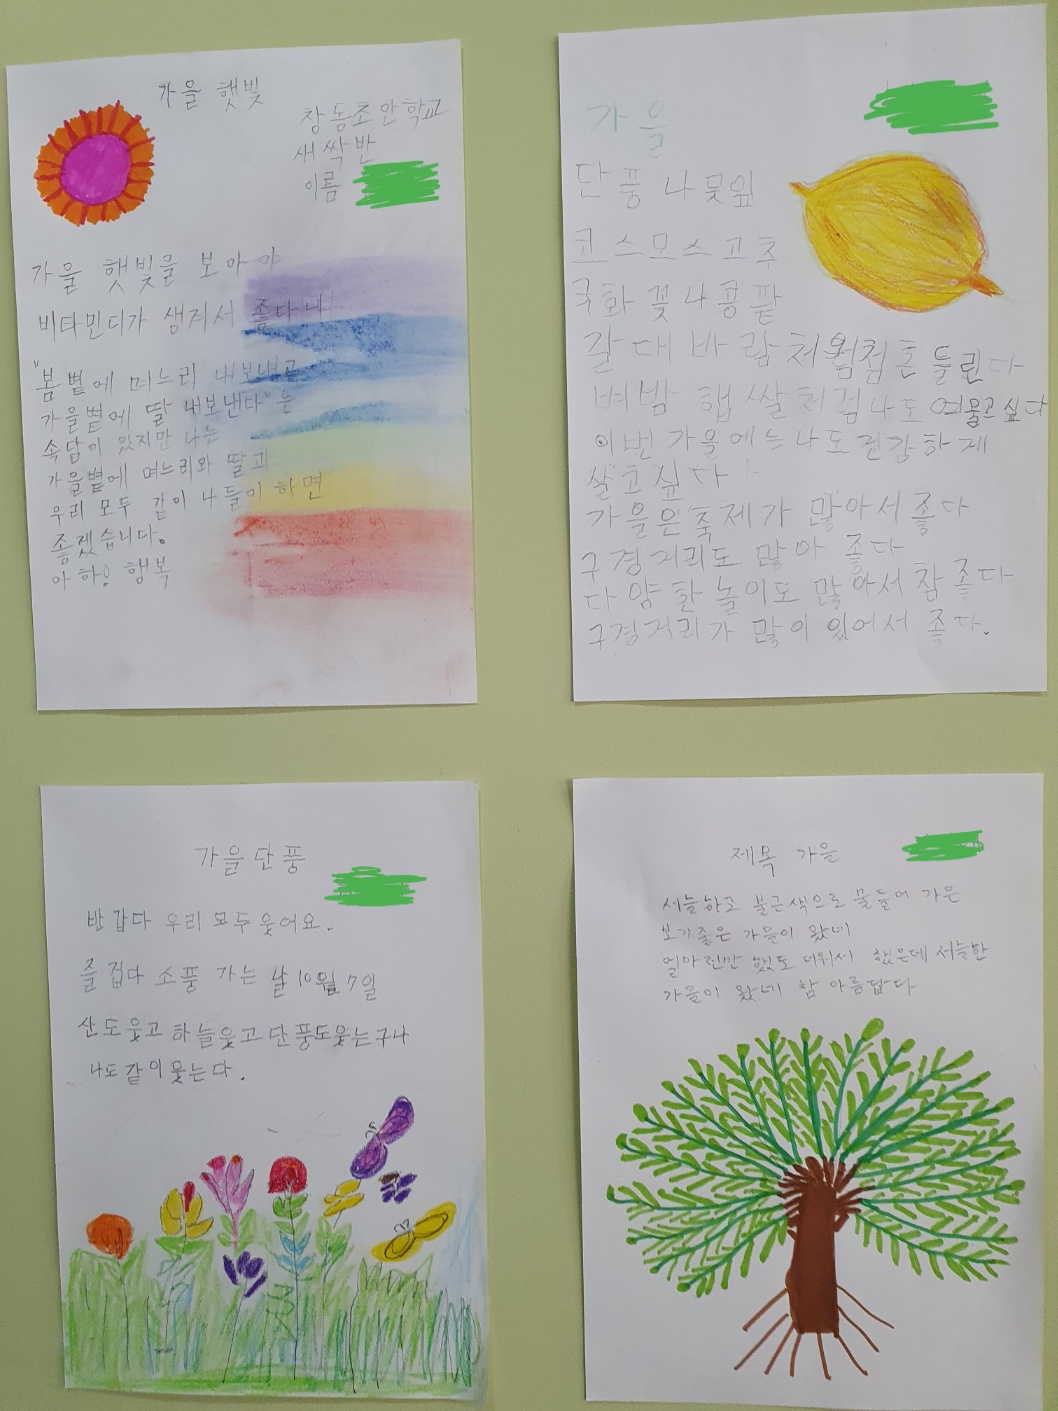 가을 햇빛
창동초안학교
새싹반
이름
가을 햇빛을 보아야
비타민디가 생겨서 좋다네
"봄볕에 며느리 내보내고
가을볕에 딸 내보낸다"는
속담이 있지만 나는
가을볕에 며느리와 딸과
우리 모두 같이 나들이 하면
좋겠습니다.
아하! 행복
가을
단풍 나뭇잎
코스모스 고추
국화 꽃 나 콩 팥
갈대 바람처럼 흔들린다
벼 밤 햅쌀처럼 나도 여물고 싶다
이번 가을에는 나도 건강하게
살고 싶다
가을은 축제가 많아서 좋다
구경거리도 많아 좋다
다양한 놀이도 많아서 참 좋다
구경거리가 많이 있어서 좋다.
가을단풍
반갑다 우리 모두 웃어요.
즐겁다 소풍 가는 날 10월 7일
산도웃고 하늘웃고 단풍도웃는구나
나도 같이웃는다.
제목 가을
서늘하고 불근색으로 물들어 가은
보기좋은 가을이 왔네
얼마전만 했도 더워서 했은데 서늘한
가을이 왔네 참 아름답다